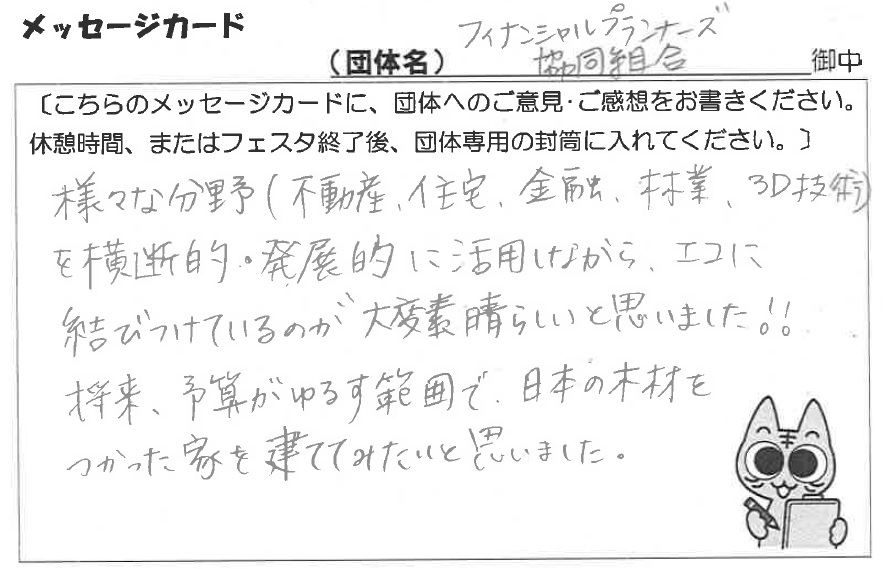 メッセージカード
フィナンシャルプランナーズ
(団体名) 協同組合 御中
〔こちらのメッセージカードに、団体へのご意見・ご感想をお書きください。
休憩時間、またはフェスタ終了後、団体専用の封筒に入れてください。〕
様々な分野(不動産、住宅、金融、林業、3D技術)
を横断的・発展的に活用しながら、エコに
結びつけているのが大変素晴らしいと思いました!!
将来、予算がゆるす範囲で、日本の木材を
つかった家を建ててみたいと思いました。